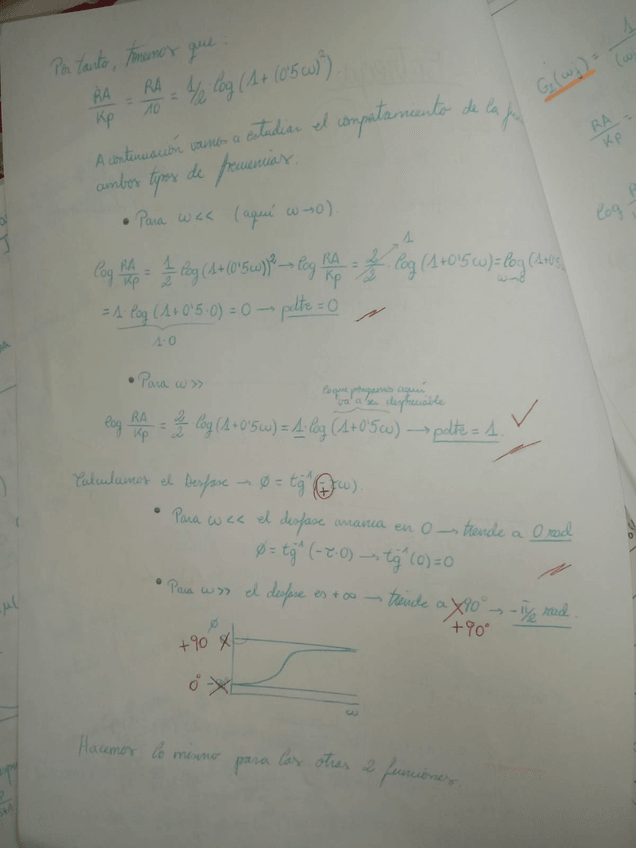 Por tanto, tenemos que:
RA/Kp = RA/10 = 1/2 · log (1 + (0'5ω)²)
A continuación vamos a estudiar el comportamiento de la
ambos tipos de frecuencias.
• Para ω<< (aquí ω→0)
log RA/Kp = 1/2 log (1+(0'5ω))² → log RA/Kp = 2/2 · log (1+0'5ω) = log (1+0'5
1
ω→0
= 1 log (1+0'5·0) = 0 → pdte = 0
1·0
• Para ω>>
lo que tengamos aquí
va a ser despreciable
log RA/Kp = 2/2 · log (1+0'5ω) = 1·log (1+0'5ω) → pdte = 1.
Calculamos el Desfase → Ø = tg⁻¹(-τω).
+
• Para ω<< el desfase arranca en 0 → tiende a 0 rad
Ø = tg⁻¹ (-τ·0) → tg⁻¹(0) = 0
• Para ω>> el desfase es +∞ → tiende a -90° → -π/2 rad.
+90°
Ø
+90
0°
ω
Hacemos lo mismo para las otras 2 funciones.
G₁(ωj) = 1
(ω
RA/Kp =
log R